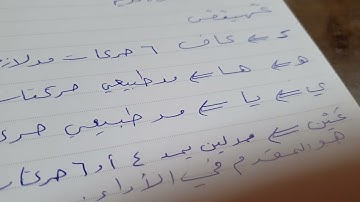 كهيعص
ك ← كاف ٦ حركات مد لازم
ه ← ها ← مد طبيعي حركتان
ي ← يا ← مد طبيعي حر
عين ← مد لين يمد ٤ أو ٦ حركات
هو المقدم في الأداء.